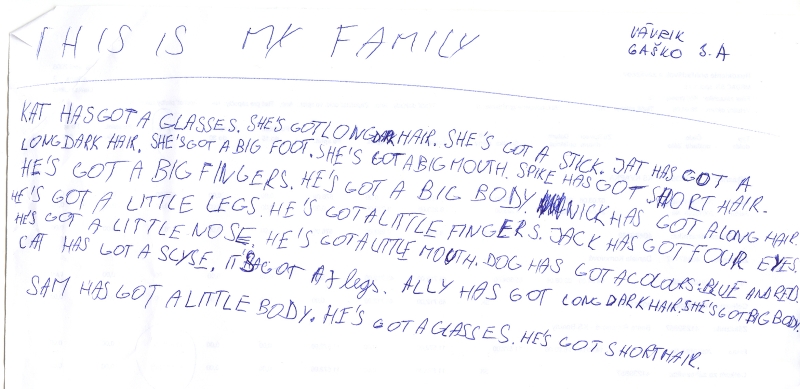 THIS IS MY FAMILY
VÁVRIK
GAŠKO 5.A
KAT HAS GOT A GLASSES. SHE'S GOT LONG DARK HAIR. SHE'S GOT A STICK. JAT HAS GOT A
LONG DARK HAIR. SHE'S GOT A BIG FOOT. SHE'S GOT A BIG MOUTH. SPIKE HAS GOT SHORT HAIR.
HE'S GOT A BIG FINGERS. HE'S GOT A BIG BODY. NICK HAS GOT A LONG HAIR.
HE'S GOT A LITTLE LEGS. HE'S GOT A LITTLE FINGERS. JACK HAS GOT FOUR EYES.
HE'S GOT A LITTLE NOSE. HE'S GOT A LITTLE MOUTH. DOG HAS GOT A COLOURS: BLUE AND RED.
CAT HAS GOT A SCYSE. IT'S GOT A 7 legs. ALLY HAS GOT LONG DARK HAIR. SHE'S GOT BIG BODY.
SAM HAS GOT A LITTLE BODY. HE'S GOT A GLASSES. HE'S GOT SHORT HAIR.